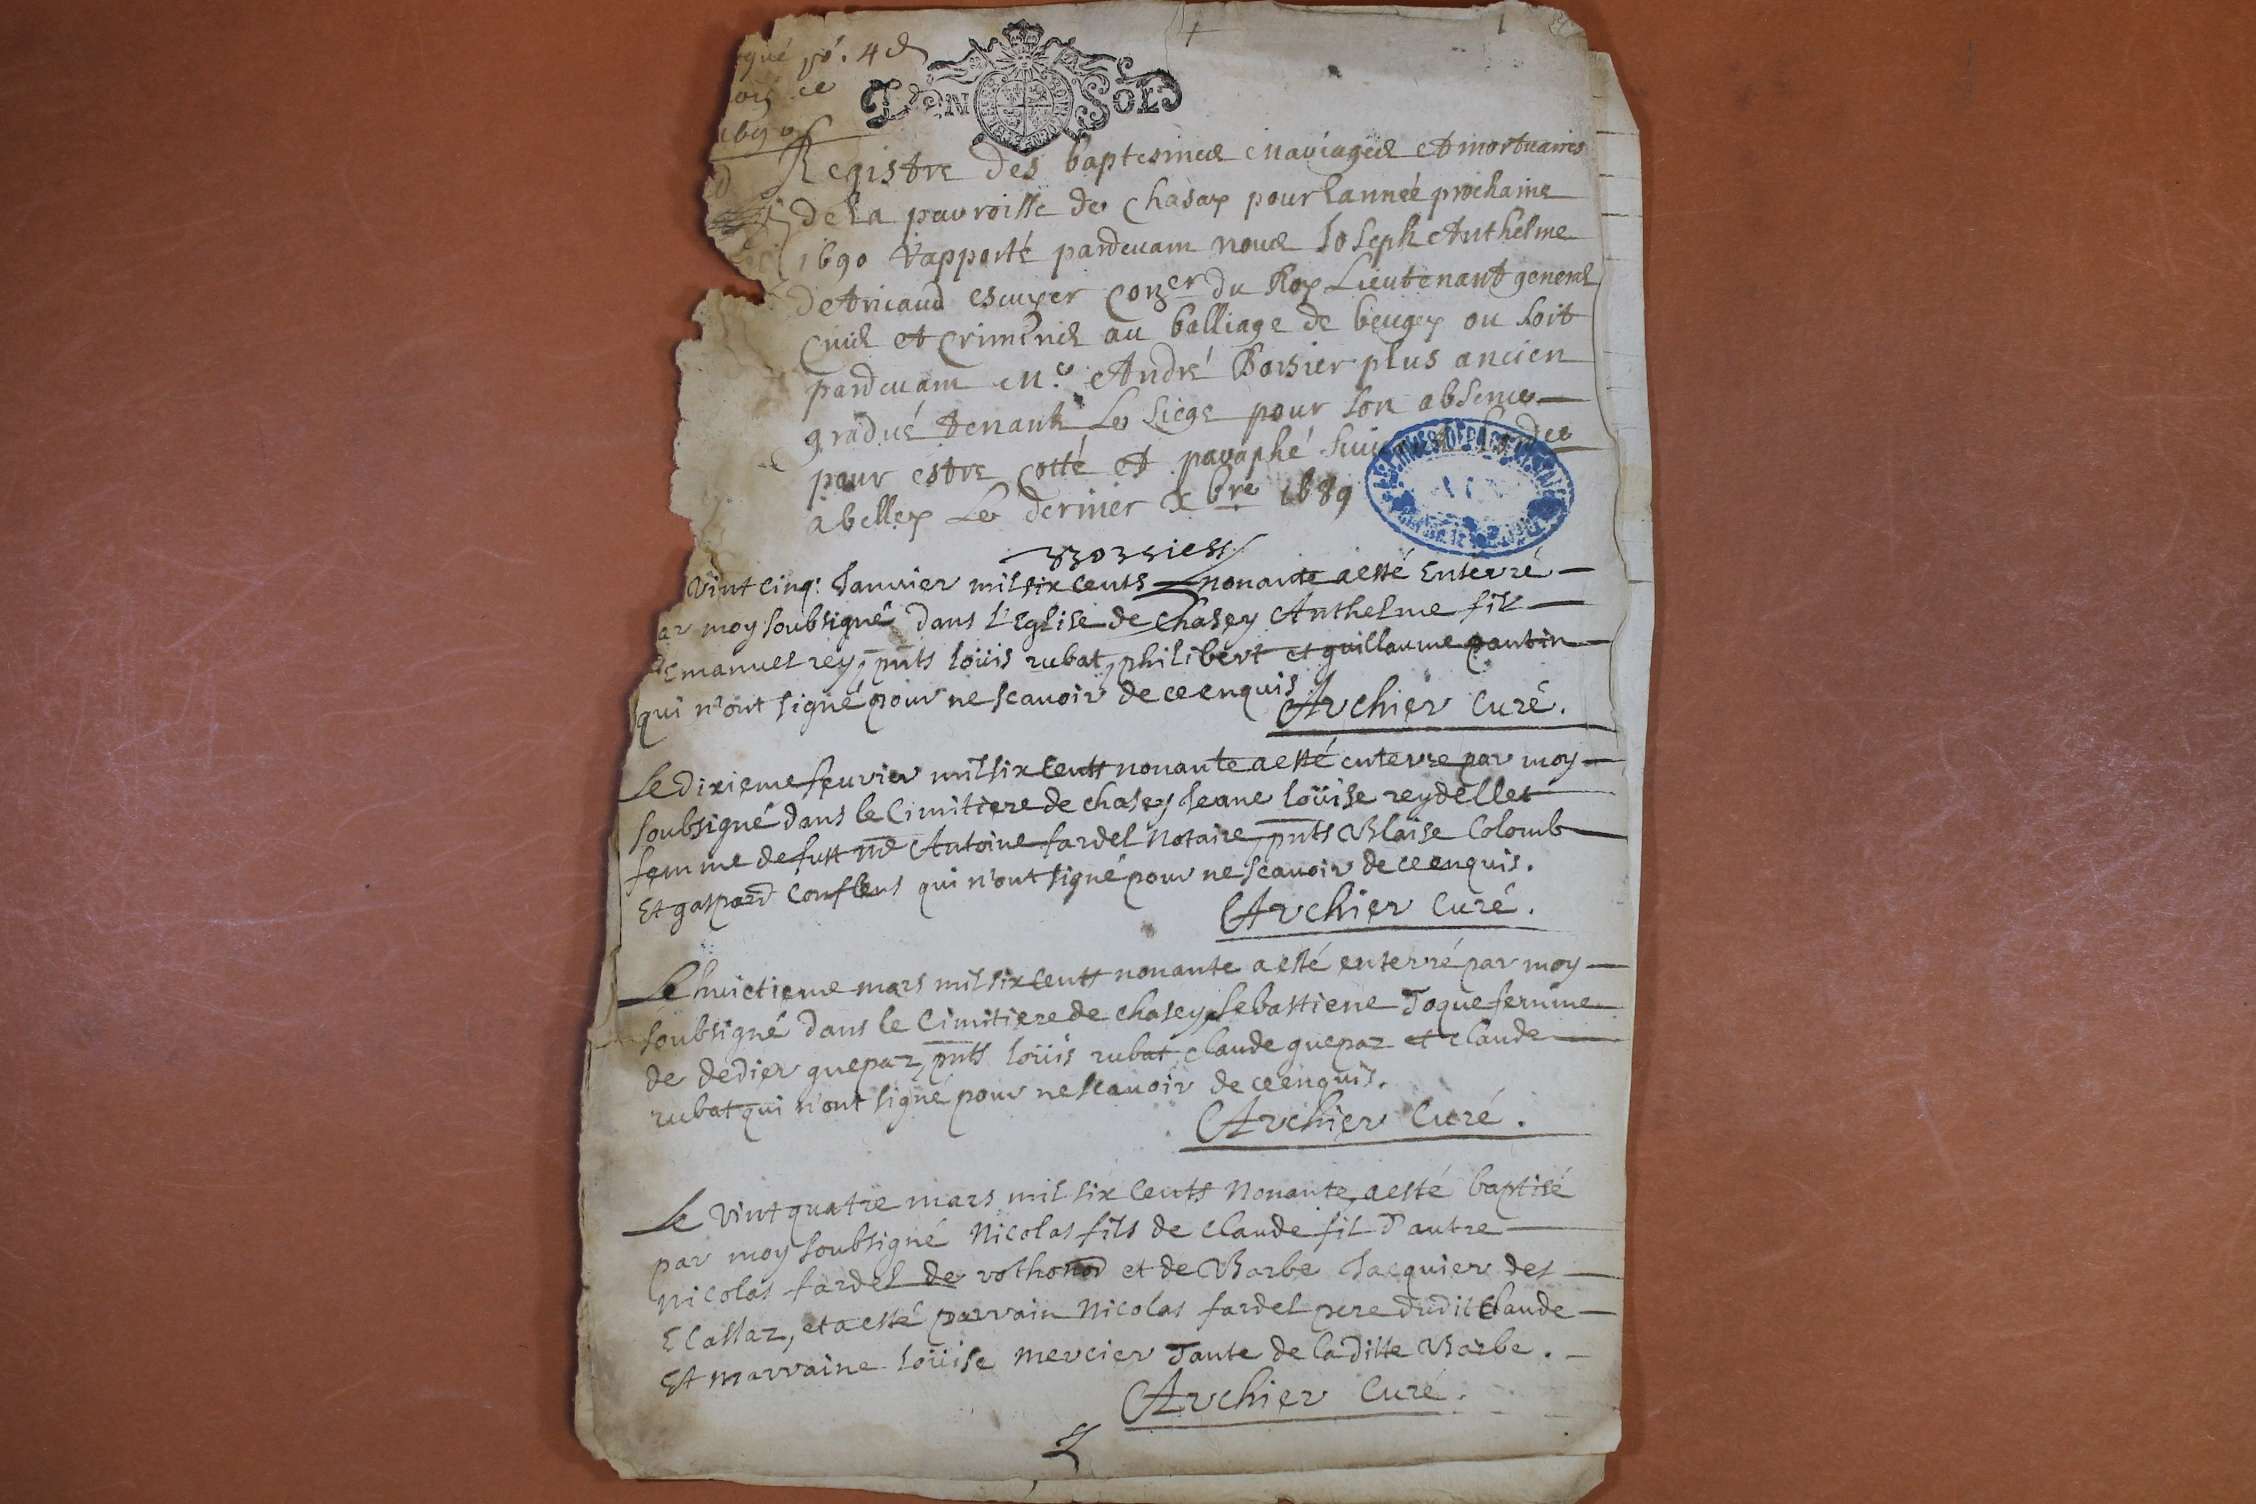 1
VN SOL
Registre des baptesmes mariages et mortuaires
de la parroisse de Chasay pour lannée prochaine
1690 rapporté pardevant nous Joseph Anthelme
de Tricaud escuyer Conser du Roy Lieutenant general
civil et criminel au balliage de beugey ou soit
pardevant Me André Borsier plus ancien
gradué tenant le siege pour son absence
pour estre cotté et paraphé
a belley le dernier Xbre 1689
Borsier
vint cinq: Janvier mil six cents nonante a esté Enterré
ar moy soubsigné dans l'Eglise de Chasey Anthelme fil
Emanuel rey, pnts loüis rubat, philibert et guillaume pantin
qui n'ont signé pour ne scavoir de ce enquis
Archier Curé.
Le dixieme fevrier mil six Cents nonante a esté enterre par moy
soubsigné dans le Cimitiere de chasey Jeane loüise reydellet
femme de futt Me Antoine fardel Notaire, pnts Blaise Colomb
Et gaspard Conflens qui n'ont signé pour ne scavoir de ce enquis.
Archier Curé.
Le huictieme mars mil six Cents nonante a esté enterré par moy
soubsigné dans le Cimitiere de chasey, Sebastiene Toque femme
de dedier guepaz, pnts loüis rubat, claude guepaz et claude
rubat qui n'ont signé pour ne scavoir de ce enquis.
Archier Curé.
Le vint quatre mars mil six Cents Nonante, a esté baptisé
par moy soubsigné Nicolas fils de claude fil d'autre
Nicolas fardel de vothonod et de Barbe Jacquier des
Ecassaz, et a esté parrain Nicolas fardel pere dudit Claude
Et marraine loüise mercier Tante de la ditte Barbe.
Archier Curé.